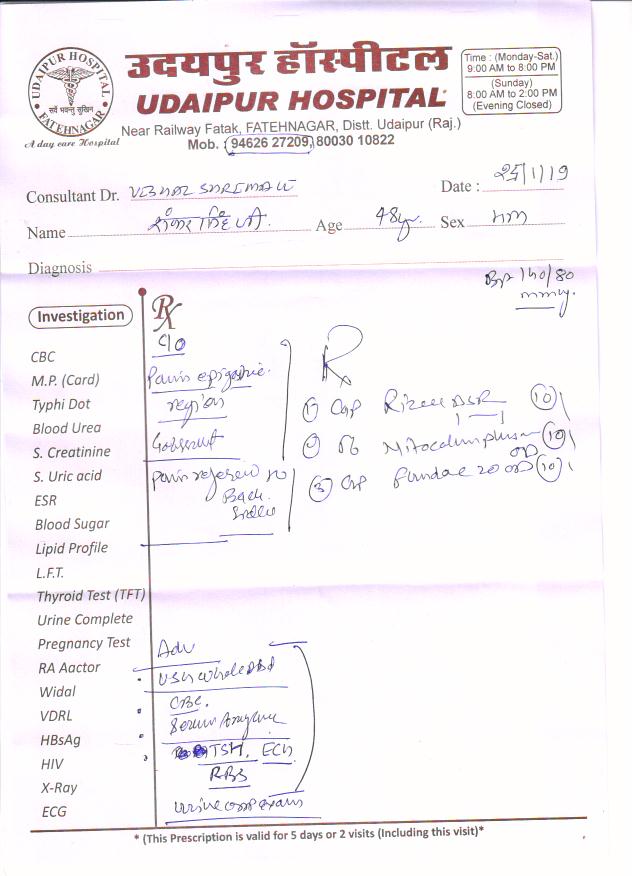 उदयपुर हॉस्पीटल
UDAIPUR HOSPITAL
UDAIPUR HOSPITAL
सर्वे भवन्तु सुखिन
FATEHNAGAR
A day care Hospital
Near Railway Fatak, FATEHNAGAR, Distt. Udaipur (Raj.)
Mob. 94626 27209, 80030 10822
Time : (Monday-Sat.)
9:00 AM to 8:00 PM
(Sunday)
8:00 AM to 2:00 PM
(Evening Closed)
Consultant Dr. Date : 25/1/19
Name Age 48yr Sex
Diagnosis
BP 140/80
Investigation
Rx
C/O
Pain epigastric
region
Pain
Back
CBC
M.P. (Card)
Typhi Dot
Blood Urea
S. Creatinine
S. Uric acid
ESR
Blood Sugar
Lipid Profile
L.F.T.
Thyroid Test (TFT)
Urine Complete
Pregnancy Test
RA Aactor
Widal
VDRL
HBsAg
HIV
X-Ray
ECG
R
1 Cap DSR 10
10
3 Cap 20 OD 10
Adv
USG whole Abd
CBC,
Serum Amylase
TSH, ECG
RBS
* (This Prescription is valid for 5 days or 2 visits (Including this visit)*